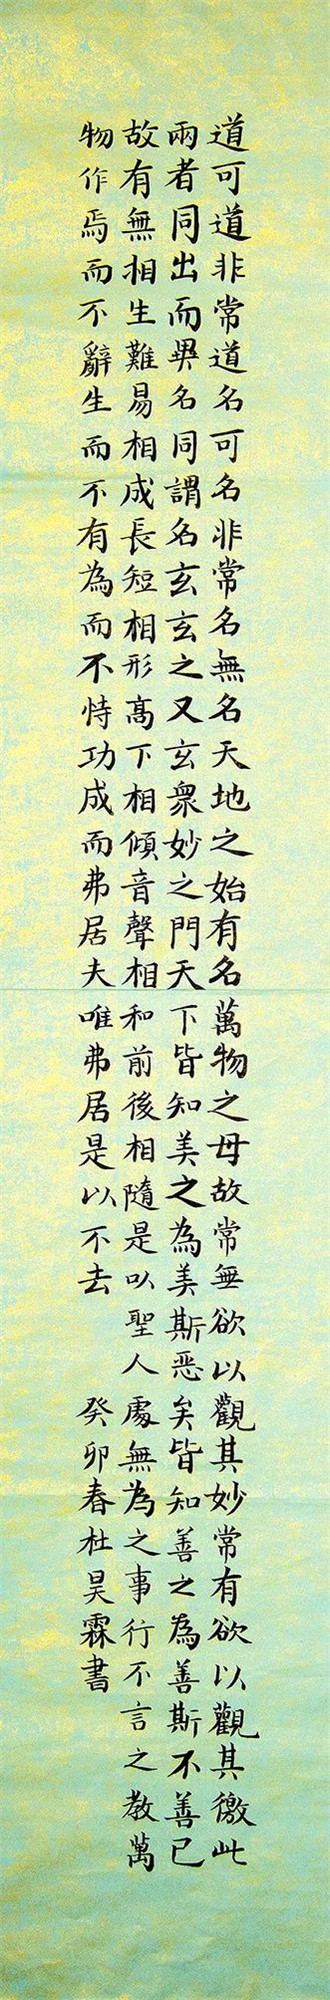 道可道非常道名可名非常名無名天地之始有名萬物之母故常無欲以觀其妙常有欲以觀其徼此
兩者同出而異名同謂名玄玄之又玄衆妙之門天下皆知美之為美斯恶矣皆知善之為善斯不善已
故有無相生難易相成長短相形髙下相傾音聲相和前後相隨是以聖人處無為之事行不言之教萬
物作焉而不辭生而不有為而不恃功成而弗居夫唯弗居是以不去 癸卯春杜昊霖書